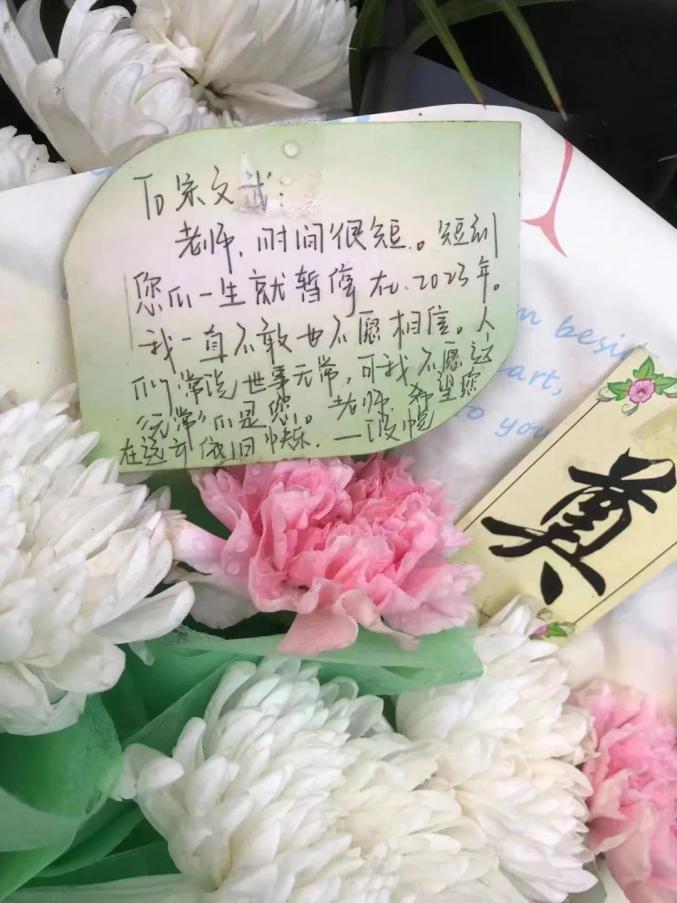 To 宋文武：
老师，时间很短。短到
您的一生就暂停在2023年。
我一直不敢也不愿相信。人
们常说世事无常，可我不愿这
“无常”的是您。老师，希望您
在远方依旧快乐. —
beside
art,
to you
奠